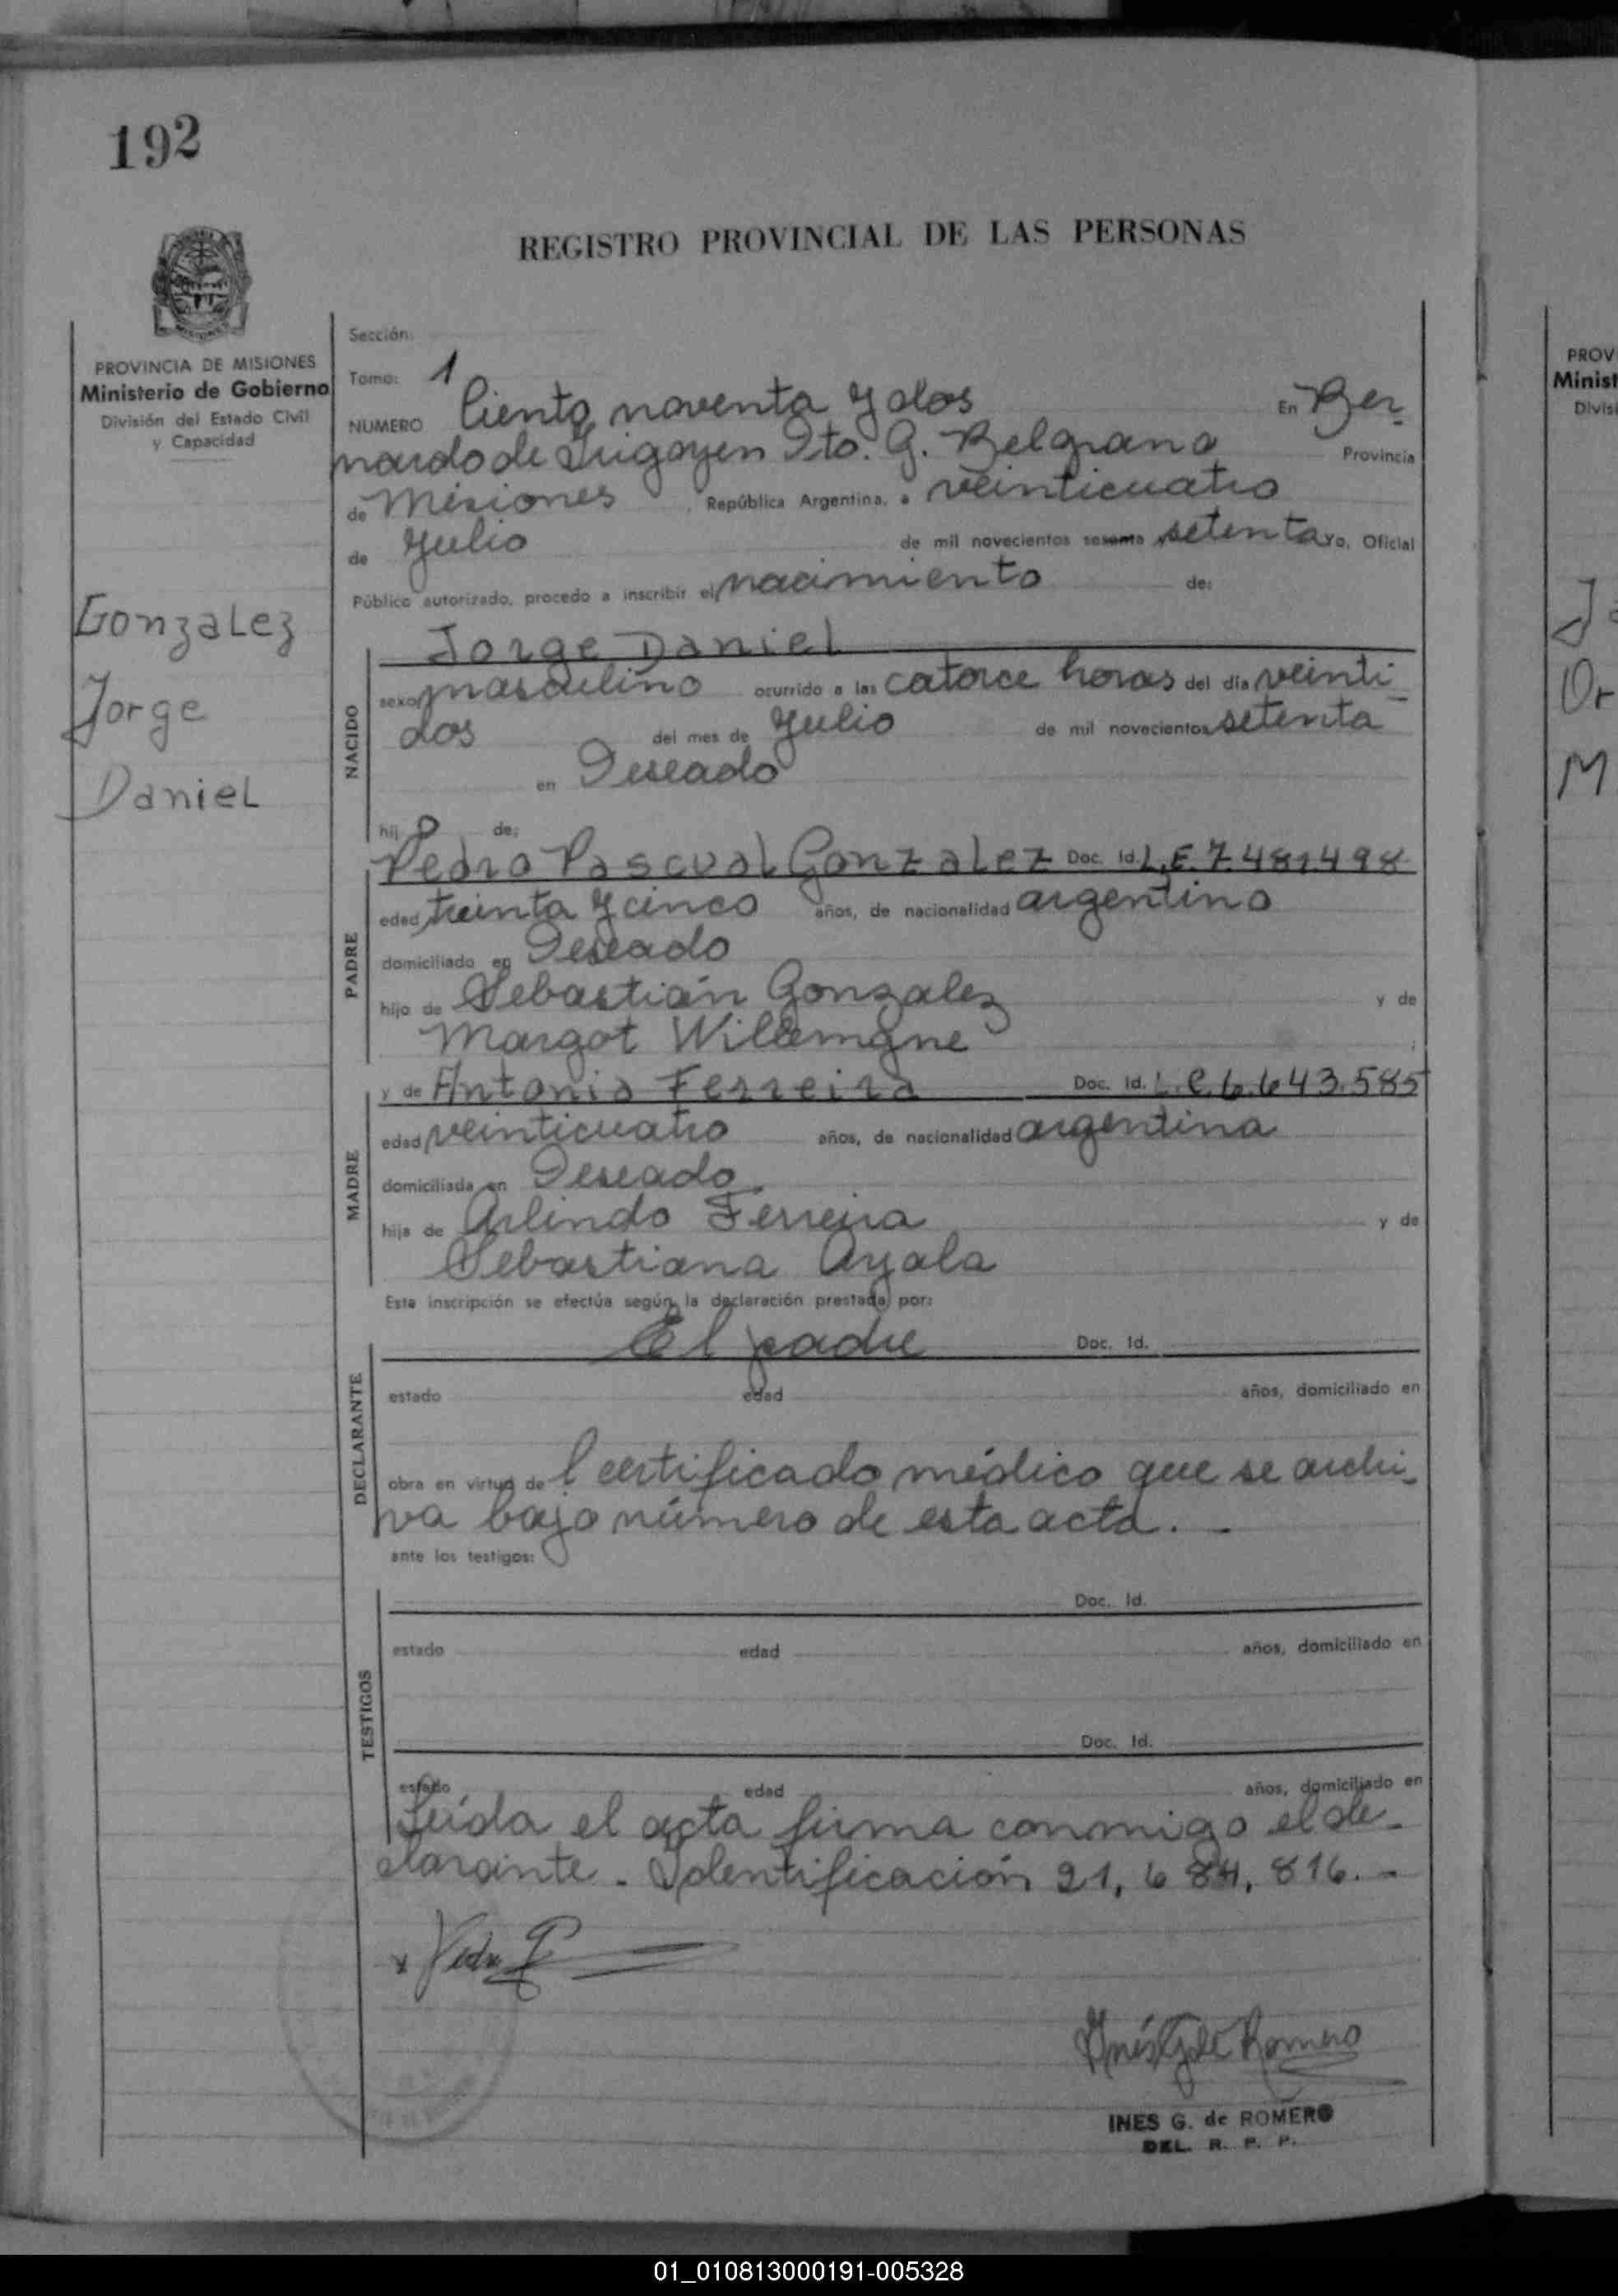 192
REGISTRO PROVINCIAL DE LAS PERSONAS
PROVINCIA DE MISIONES
Ministerio de Gobierno
División del Estado Civil
y Capacidad
Gonzalez
Jorge
Daniel
Sección:
Tomo: 1
NUMERO Ciento noventa y dos En Ber-
nardo de Irigoyen Dto. G. Belgrano Provincia
de Misiones, República Argentina, a veinticuatro
de Julio de mil novecientos sesenta setenta Yo, Oficial
Público autorizado, procedo a inscribir el nacimiento de:
NACIDO
Jorge Daniel
sexo masculino ocurrido a las catorce horas del día veinti-
dos del mes de Julio de mil novecientos setenta
en Deseado
hijo de:
PADRE
Pedro Pascual Gonzalez Doc. Id. L.E. 7.481.498
edad treinta y cinco años, de nacionalidad argentino
domiciliado en Deseado
hijo de Sebastián Gonzalez y de
Margot Willemgne ;
MADRE
y de Antonia Ferreira Doc. Id. L.C. 6.643.585
edad veinticuatro años, de nacionalidad argentina
domiciliada en Deseado
hija de Arlindo Ferreira y de
Sebastiana Ayala
Esta inscripción se efectúa según la declaración prestada por:
DECLARANTE
El padre Doc. Id.
estado edad años, domiciliado en
obra en virtud de l certificado médico que se archi-
va bajo número de esta acta. -
ante los testigos:
TESTIGOS
Doc. Id.
estado edad años, domiciliado en
Doc. Id.
estado edad años, domiciliado en
Leída el acta firma conmigo el de-
clarante. Identificación 21,684,816. -
x Pedro G
Inés G de Romero
INES G. de ROMERO
DEL. R. P. P.
PROV
Minist
Divisi
Or
M
01_010813000191-005328